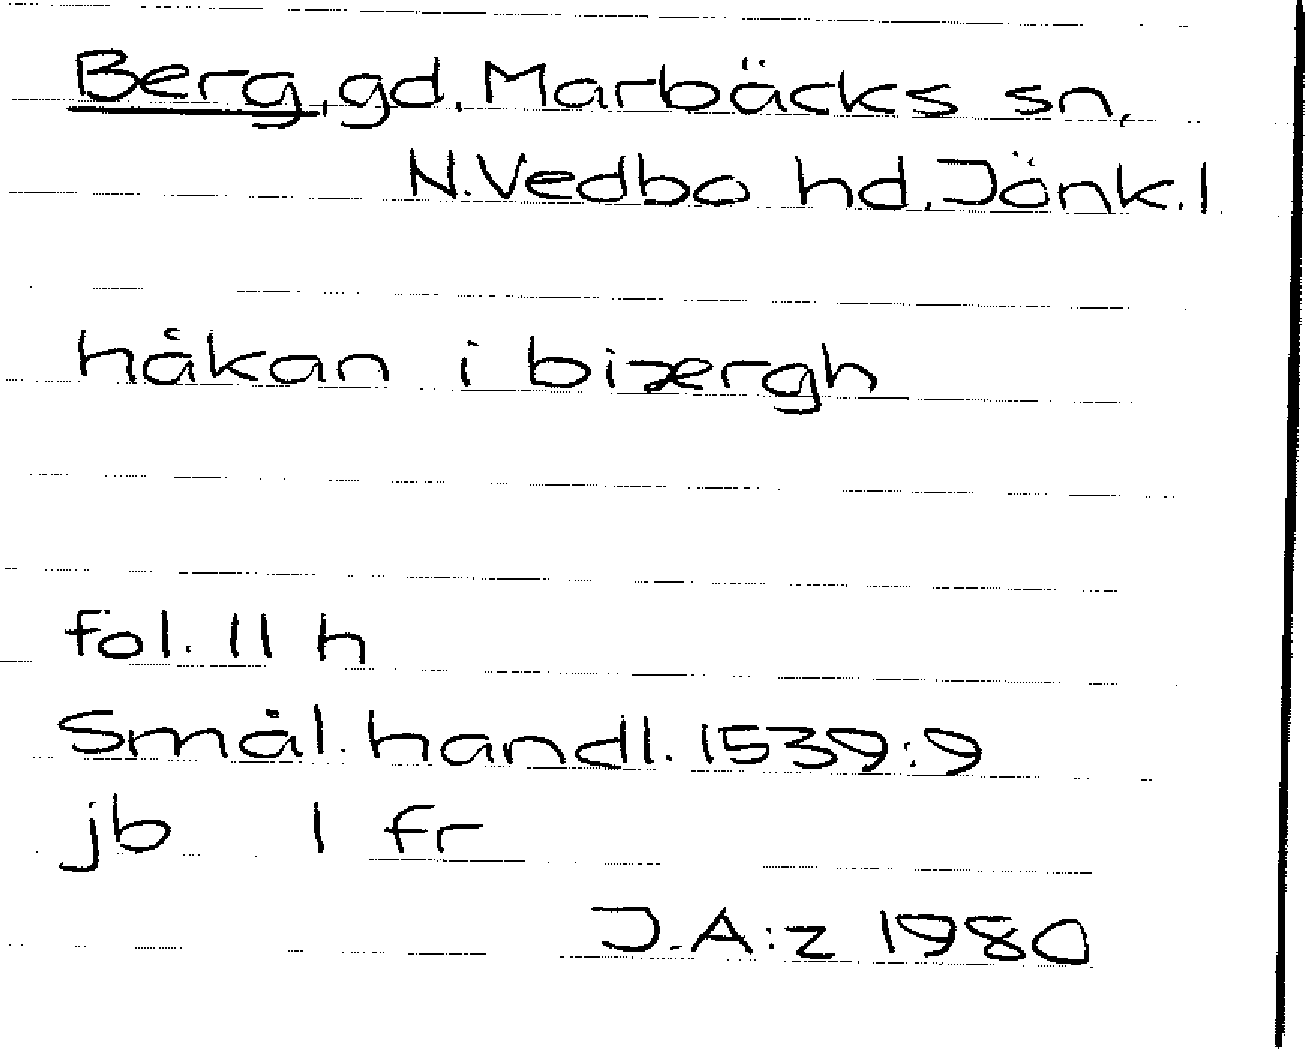 Berg, gd, Marbäcks sn,
N. Vedbo hd, Jönk. l
håkan i biærgh
fol. 11 h
Smål. handl. 1539:9
jb 1 fr
J.A:z 1980